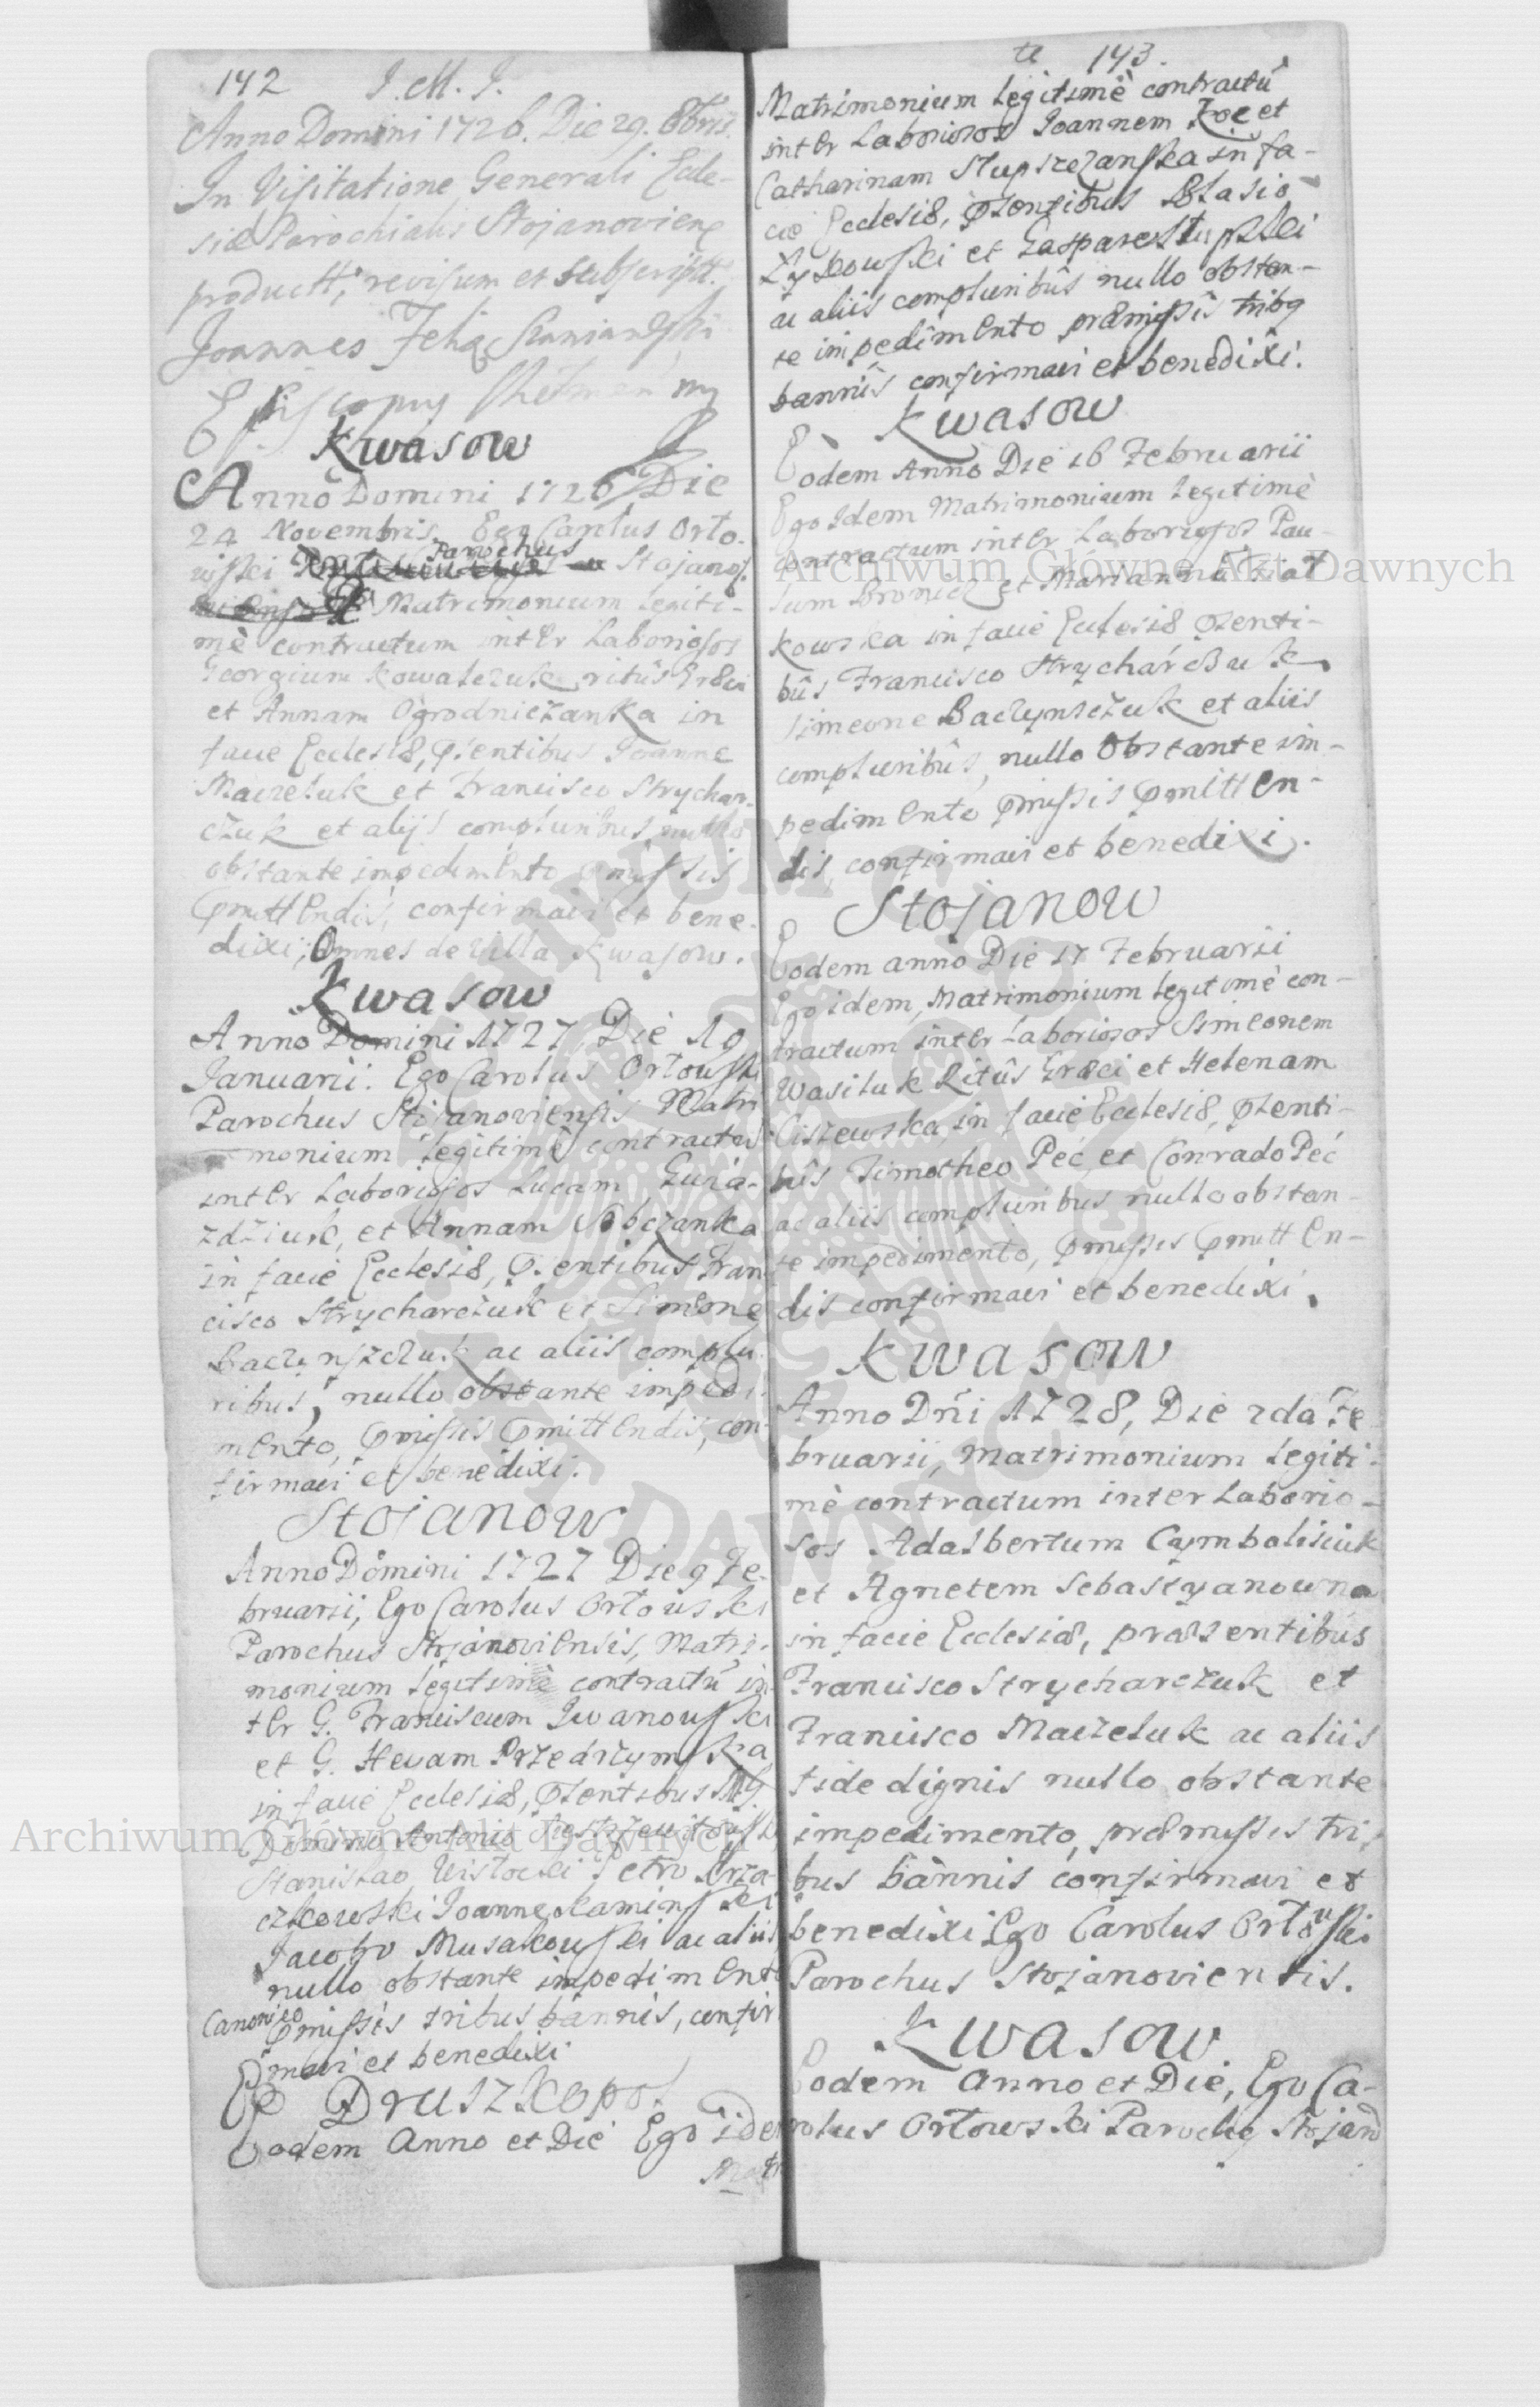 142 J. M. J.
Anno Domini 1726. Die 29. 8bris.
In Visitatione Generali Eccle-
siæ Parochialis Stojanoviens
product, revisum et subscript.
Joannes Felix Szaniawski
Episcopus
Kwasow
Anno Domini 1726 Die
24 Novembris, Ego Carolus Orło-
wski Parochus Stojanov.
Matrimonium legiti-
mè contractum inter Laboriosos
Georgium Kowalczuk ritûs Græci
et Annam Ogrodniczanka in
facie Ecclesiæ, pntibus Joanne
Maczeluk et Francisco Strychar-
czuk et alijs compluribus nullo
obstante impedimento pmissis
pmittendis, confirmavi et bene-
dixi, Omnes de Villa Kwasow.
Kwasow
Anno Domini 1727 Die 19
Januarii. Ego Carolus Orłowski
Parochus Stojanoviensis Matri
monium legitimè contractu
inter Laboriosos Lucam
et Annam Sobczanka
in facie Ecclesiæ, psentibus Fran
cisco Strycharczuk et Simeone
Baczynszczuk ac aliis complu
ribus, nullo obstante impedi
mento, pmissis pmittendis, con
firmavi et benedixi.
Stojanow
Anno Domini 1727 Die 9 Fe-
bruarii, Ego Carolus Orłowski
Parochus Stojanoviensis, Matri-
monium legitimè contractũ in
ter G. Franciscum Iwanowski
et G. Hevam Przedrzymska
in facie Ecclesiæ, psentibus
Domino Antonio
Stanislao Wistocki Petro
Joanne Kaminski
Jacobo Musakowski ac aliis
nullo obstante impedimento
Canonico pmissis tribus bannis, confir
mavi et benedixi
Druszkopol
Eodem Anno et Die Ego idem
Matr
te 143.
Matrimonium legitimè contractũ
inter Laboriosos Joannem et
Catharinam Słupszczanska in fa-
cie Ecclesiæ, psentibus Blasio
Żykowski et Gaspare Słupski
ac aliis compluribûs nullo obstan-
te impedimento præmissis tribq
bannis confirmavi et benedixi.
Kwasow
Eodem Anno Die 16 Februarii
Ego Idem Matrimonium legitimè
contractum inter Laboriosos Pau-
lum Bronicz et Mariannã
kowska in facie Ecclesiæ psenti-
bûs Francisco Strycharczuk
Simeone Baczynszczuk et aliis
compluribûs, nullo Obstante im-
pedimento pmissis pmitten-
dis, confirmavi et benedixi.
Stojanow
Eodem anno Die 17 Februarii
Ego idem, Matrimonium legitimè con-
tractum inter Laboriosos Simeonem
Wasiluk Ritûs Græci et Helenam
Ciszewska in facie Ecclesiæ, psenti-
bûs Timotheo Peć et Conrado Peć
ac aliis compluribus nullo obstan-
te impedimento, pmissis pmitten-
dis confirmavi et benedixi.
Kwasow
Anno Dñi 1728, Die 2da Fe
bruarii, Matrimonium legiti-
mè contractum inter Laborio-
sos Adalbertum Cymbalisiuk
et Agnetem Sebastyanowna
in facie Ecclesiæ, præsentibus
Francisco Strycharczuk et
Francisco Maczeluk ac aliis
fide dignis nullo obstante
impedimento, præmissis tri-
bus bannis confirmavi et
benedixi Ego Carolus Orłowski
Parochus Stojanoviensis.
Kwasow
Eodem Anno et Die, Ego Ca-
rolus Orłowski Parochq Stojano
Archiwum Główne Akt Dawnych
Archiwum Główne Akt Dawnych